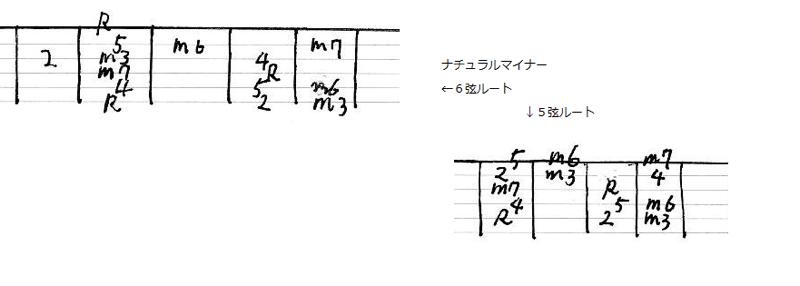 R
5 m6 m7
2 m3 4
m7 R
4 5 m6
R 2 m3
ナチュラルマイナー
←６弦ルート
↓５弦ルート
5 m6 m7
2 m3 4
m7 R
4 5 m6
R 2 m3